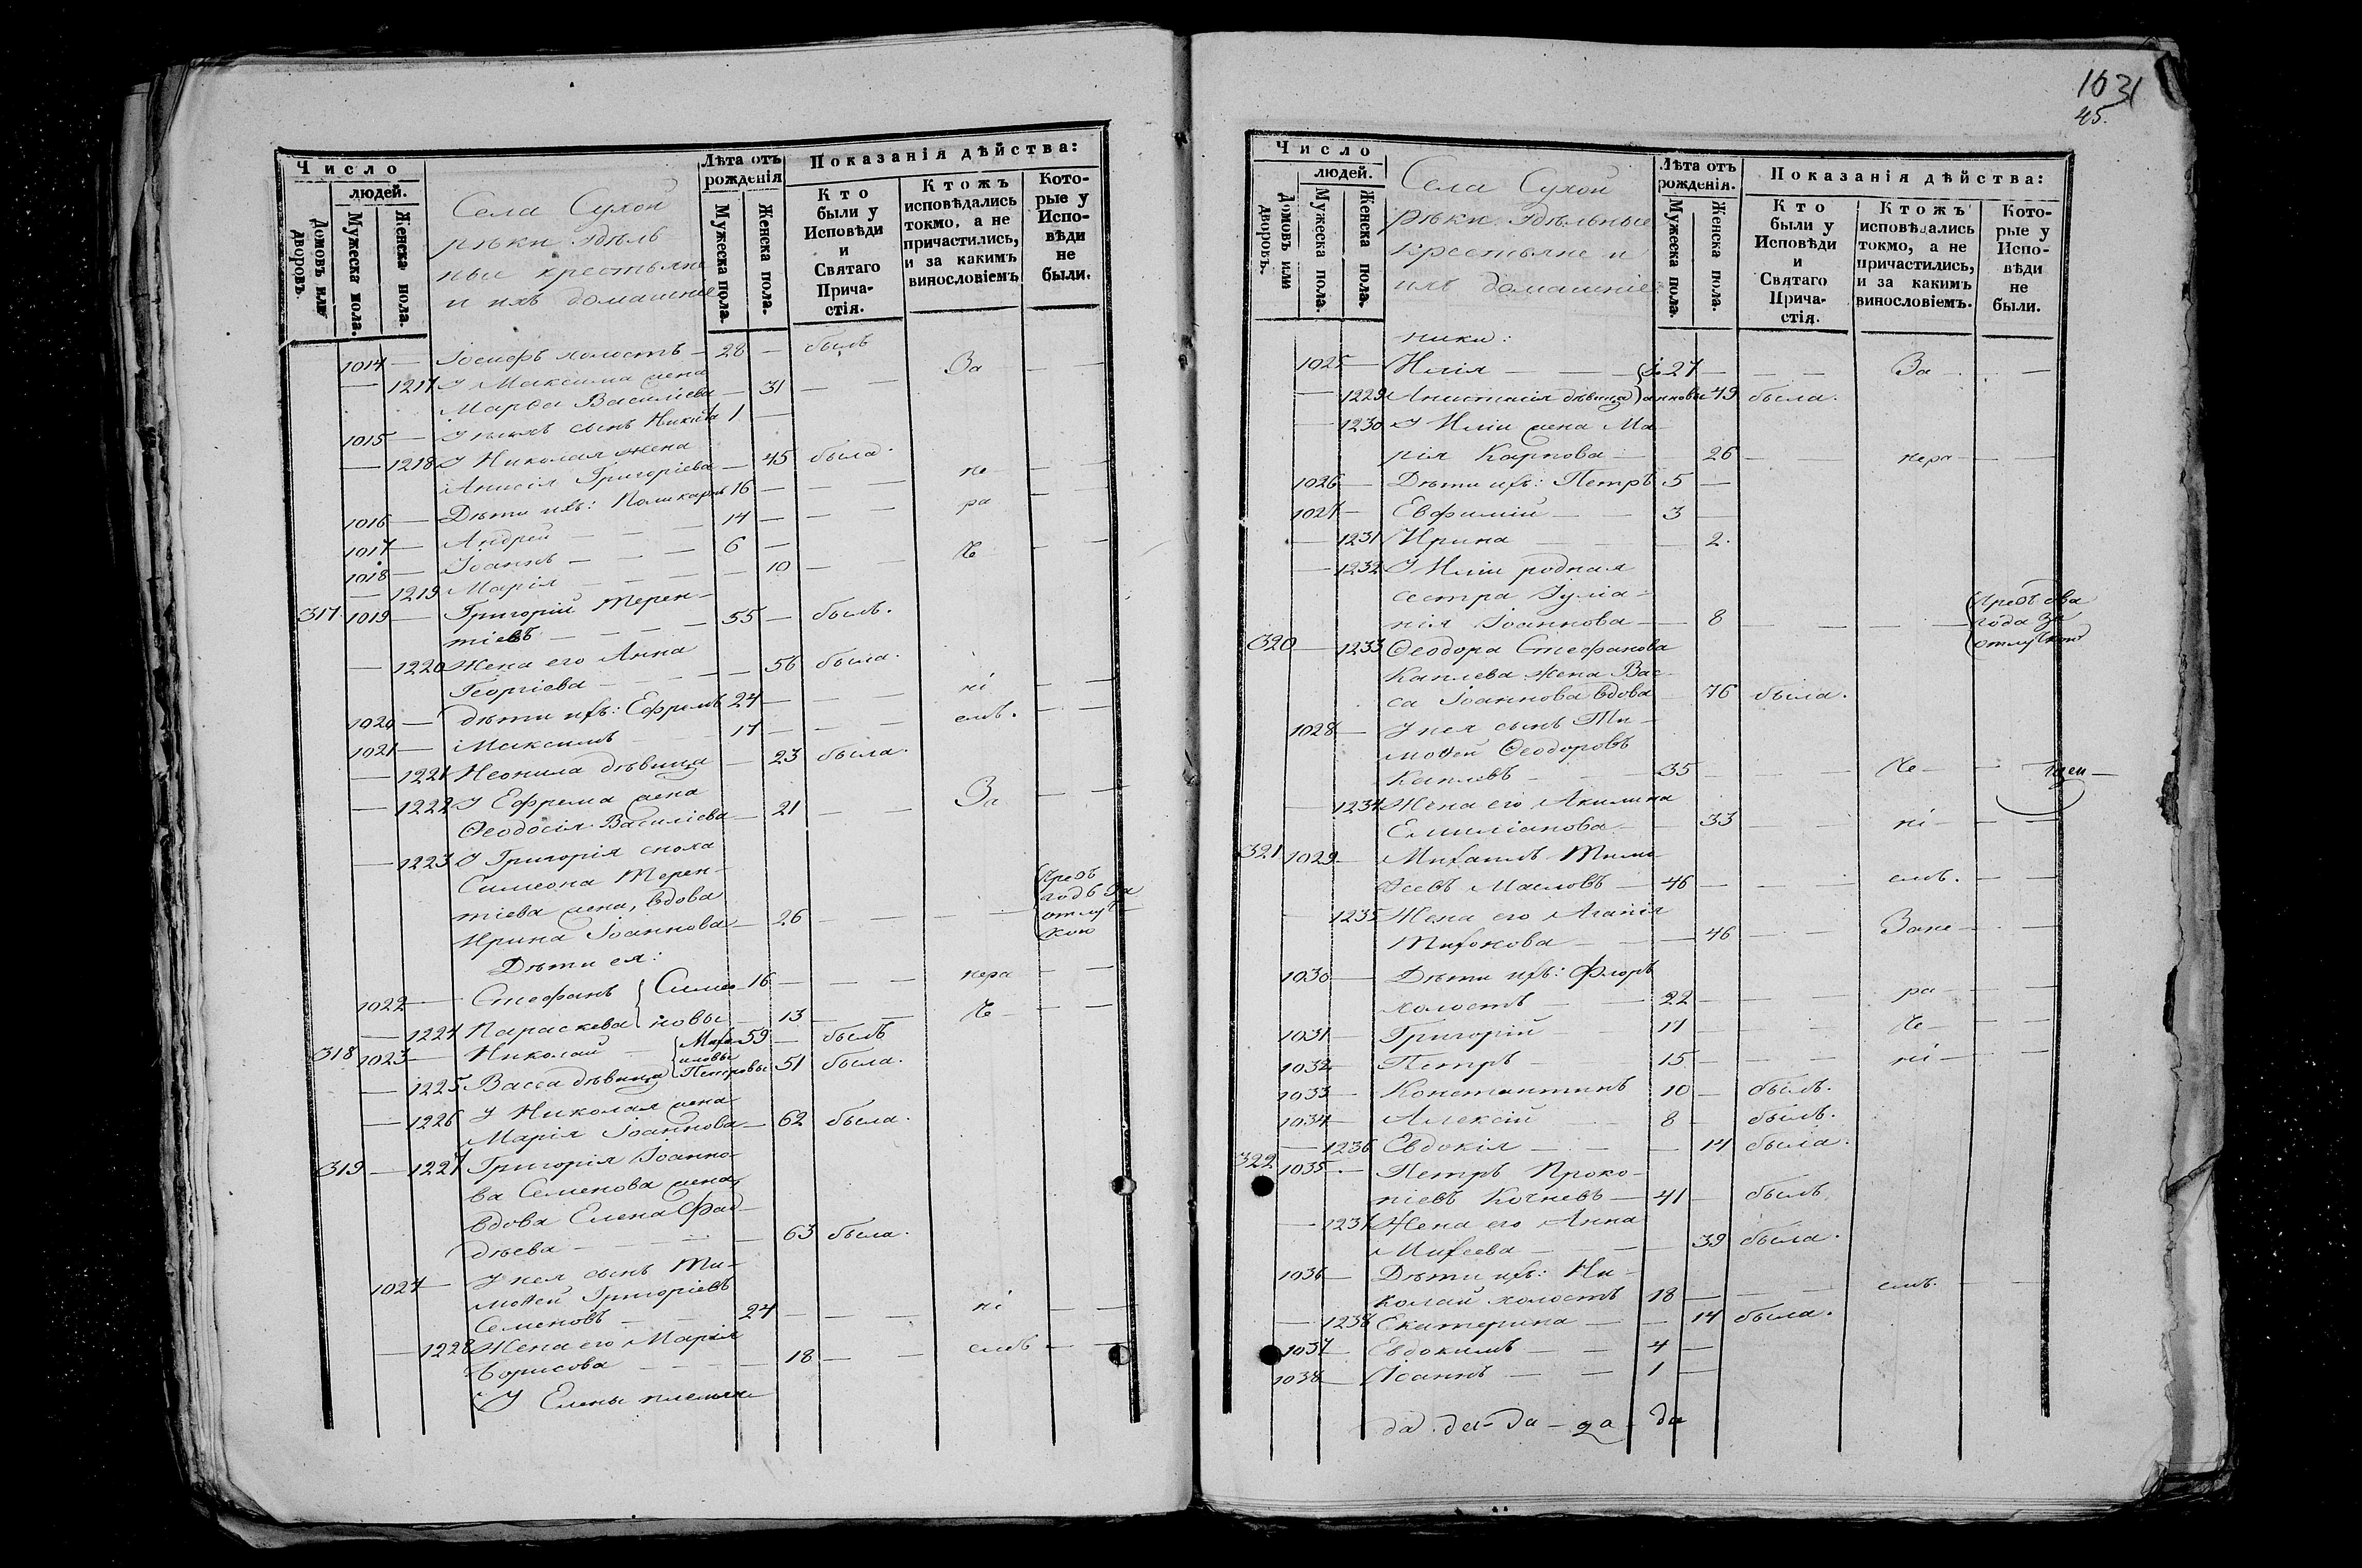 Число
людей.
Домовъ или дворовъ.
Мужеска пола.
Женска пола.
Села Сухой
рѣки удѣль-
ные крестьяне
и ихъ домашніе
Лѣта отъ рожденія
Мужеска пола.
Женска пола.
Показанія дѣйства:
Кто были у Исповѣди и Святаго Прича- стія.
Ктожъ исповѣдались токмо, а не причастились, и за какимъ винословіемъ
Кото- рые у Испо- вѣди не были.
1014 — Іосифъ холостъ — 28 — былъ
— 1217 У Максима жена За
Марѳа Василіева — 31 — —
1015 — У нихъ сынъ Никита 1 —
— 1218 У Николая жена
Анисія Григоріева — 45 была.
1016 — Дѣти ихъ: Поликарпъ 16 — — — не — —
1017 — Андрей — — 14 — — — ра — —
1018 — Іоаннъ — — 6 —
— 1219 Марія — — — 10 — — Че — —
317 1019 — Григорій Терен-
тіевъ — — — 55 — былъ.
— 1220 Жена его Анна
Георгіева — — — 56 была.
1020 — Дѣти ихъ: Ефремъ 24 — — — ні — —
1021 — Максимъ 17 — — — емъ. — —
— 1221 Неонила дѣвица — 23 была.
— 1222 У Ефрема жена
Ѳеодосія Василіева — 21 — — За — —
— 1223 У Григорія сноха
Симеона Терен-
тіева жена, вдова
Ирина Іоаннова — 26 — — — — Чрезъ годъ за отлуч- кою
Дѣти ея:
1022 — Стефанъ Симео- 16 — — — нера — —
— 1224 Параскева новы — 13 — — Че — —
318 1023 — Николай — Миха- иловы 59 — былъ
— 1225 Васса дѣвица Петровы 51 была.
— 1226 У Николая жена
Марія Іоаннова — 62 была.
319 — 1227 Григорія Іоанно-
ва Семенова жена,
вдова Елена Фад-
дѣева — — — 63 была.
1024 — У нея сынъ Ти-
моѳей Григоріевъ
Семеновъ — — 24 — — — ні — —
— 1228 Жена его Марія
Борисова — — — 18 — — емъ — —
У Елены племян-
1031
45.
Число
людей.
Домовъ или дворовъ.
Мужеска пола.
Женска пола.
Села Сухой
рѣки удѣльные
крестьяне и
ихъ домашніе
Лѣта отъ рожденія.
Мужеска пола.
Женска пола.
Показанія дѣйства:
Кто были у Исповѣди и Святаго Прича- стія.
Ктожъ исповѣдались токмо, а не причастились, и за какимъ винословіемъ.
Кото- рые у Испо- вѣди не были.
ники:
1025 — Илія — — — Іо- 27 — — — За — —
— 1229 Анастасія дѣвица анновы 49 была.
— 1230 У Иліи жена Ма-
рія Карпова — 26 — — нера — —
1026 — Дѣти ихъ: Петръ 5 —
1027 — Евфимій — — 3 —
— 1231 Ирина — — — 2.
— 1232 У Иліи родная
сестра Іуліа-
нія Іоаннова — 8 — — — — Чрезъ два года за отлучкою
320 — 1233 Ѳеодора Стефанова
Каплева жена Вас-
са Іоаннова вдова — 76 была.
1028 — У нея сынъ Ти-
моѳей Ѳеодоровъ
Каплевъ — — 35 — — — Че — —
— 1234 Жена его Акилина
Емиліанова — — 33 — — ні — —
321 1029 — Михаилъ Тимо-
ѳеевъ Масловъ — 46 — — — емъ. — —
— 1235 Жена его Агапія
Тихонова — — 46 — — Зане — —
1030 — Дѣти ихъ: Флоръ
холостъ — — 22 — — — ра — —
1031 — Григорій — — 17 — — — Че — —
1032 — Петръ — — 15 — — — ні — —
1033 — Константинъ 10 — былъ.
1034 — Алексій — 8 — былъ.
— 1236 Евдокія — — — 14 была.
322 1035 — Петръ Проко-
піевъ Кочневъ — 41 — былъ,
— 1237 Жена его Анна
Михеева — — — 39 была.
1036 — Дѣти ихъ: Ни-
колай холостъ 18 — — — емъ. — —
— 1238 Екатерина — — 14 была.
1037 — Евдокимъ — — 4 —
1038 — Іоаннъ — — 1 —
да да-да-да-да